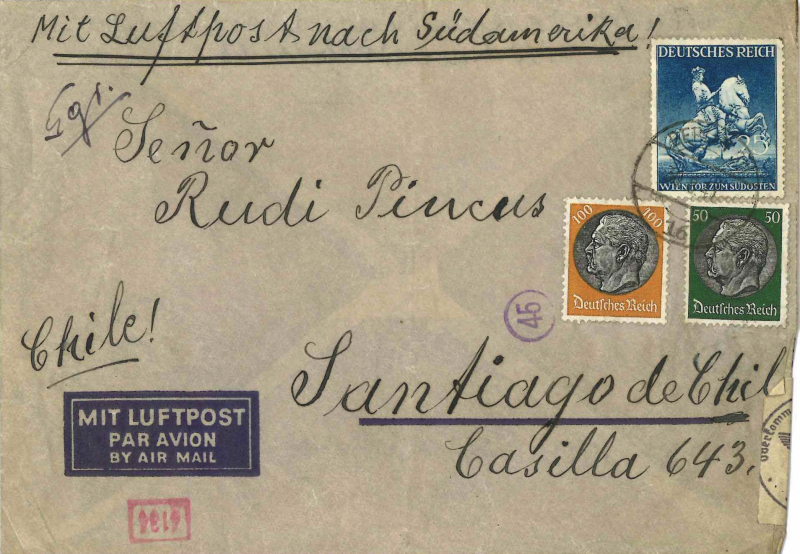 Mit Luftpost nach Südamerika!
DEUTSCHES REICH
WIEN TOR ZUM SÜDOSTEN
16
Señor
Rudi Pincus
100 100
Deutsches Reich
50 50
Deutsches Reich
45
Chile!
Santiago de Chil
Casilla 643.
MIT LUFTPOST
PAR AVION
BY AIR MAIL
Oberkomm